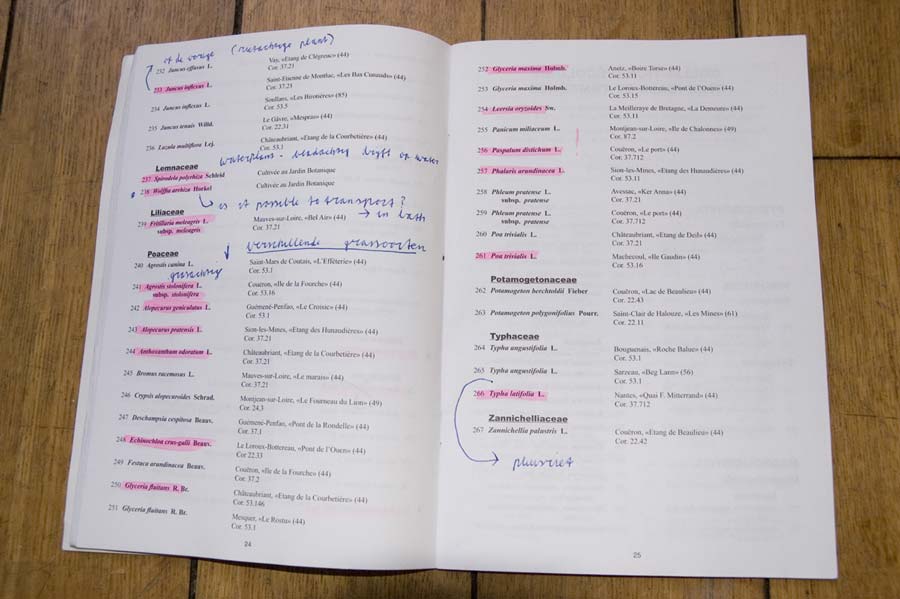 of de vorige (rusachtige plant)
232 Juncus effusus L. Vay, «Etang de Clégreuc» (44)
Cor. 37.21
233 Juncus inflexus L. Saint-Etienne de Montluc, «Les Bas Cunauds» (44)
Cor. 37.21
234 Juncus inflexus L. Soullans, «Les Bironières» (85)
Cor. 53.5
235 Juncus tenuis Willd. Le Gâvre, «Mespras» (44)
Cor. 22.31
236 Luzula multiflora Lej. Châteaubriant, «Etang de la Courbetière» (44)
Cor. 53.1
Lemnaceae
waterplant - drijft op water
237 Spirodela polyrhiza Schleid Cultivée au Jardin Botanique
238 Wolffia arrhiza Horkel Cultivée au Jardin Botanique
is it possible to transport?
→ in bath
Liliaceae
239 Fritillaria meleagris L. Mauves-sur-Loire, «Bel Air» (44)
subsp. meleagris Cor. 37.21
verschillende grassoorten
Poaceae
240 Agrostis canina L. Saint-Mars de Coutais, «L'Effèterie» (44)
Cor. 53.1
grasachtig
241 Agrostis stolonifera L. Couëron, «Ile de la Fourche» (44)
subsp. stolonifera Cor. 53.16
242 Alopecurus geniculatus L. Guémené-Penfao, «Le Croisic» (44)
Cor. 53.1
243 Alopecurus pratensis L. Sion-les-Mines, «Etang des Hunaudières» (44)
Cor. 37.21
244 Anthoxanthum odoratum L. Châteaubriant, «Etang de la Courbetière» (44)
Cor. 37.21
245 Bromus racemosus L. Mauves-sur-Loire, «Le marais» (44)
Cor. 37.21
246 Crypsis alopecuroides Schrad. Montjean-sur-Loire, «Le Fourneau du Lion» (49)
Cor. 24.3
247 Deschampsia cespitosa Beauv. Guémené-Penfao, «Pont de la Rondelle» (44)
Cor. 37.1
248 Echinochloa crus-galli Beauv. Le Loroux-Bottereau, «Pont de l'Ouen» (44)
Cor 22.33
249 Festuca arundinacea Beauv. Couëron, «Ile de la Fourche» (44)
Cor. 37.2
250 Glyceria fluitans R. Br. Châteaubriant, «Etang de la Courbetière» (44)
Cor. 53.146
251 Glyceria fluitans R. Br. Mesquer, «Le Rostu» (44)
Cor. 53.1
24
252 Glyceria maxima Holmb. Anetz, «Boire Torse» (44)
Cor. 53.11
253 Glyceria maxima Holmb. Le Loroux-Bottereau, «Pont de l'Ouen» (44)
Cor. 53.15
254 Leersia oryzoides Sw. La Meilleraye de Bretagne, «La Demeure» (44)
Cor. 53.11
255 Panicum miliaceum L. Montjean-sur-Loire, «Ile de Chalonnes» (49)
Cor. 87.2
256 Paspalum distichum L. Couëron, «Le port» (44)
Cor. 37.712
257 Phalaris arundinacea L. Sion-les-Mines, «Etang des Hunaudières» (44)
Cor. 53.11
258 Phleum pratense L. Avessac, «Ker Anna» (44)
subsp. pratense Cor. 37.21
259 Phleum pratense L. Couëron, «Le port» (44)
subsp. pratense Cor. 37.712
260 Poa trivialis L. Châteaubriant, «Etang de Deil» (44)
Cor. 37.21
261 Poa trivialis L. Machecoul, «Ile Gaudin» (44)
Cor. 53.16
Potamogetonaceae
262 Potamogeton berchtoldii Fieber Couëron, «Lac de Beaulieu» (44)
Cor. 22.43
263 Potamogeton polygonifolius Pourr. Saint-Clair de Halouze, «Les Mines» (61)
Cor. 22.11
Typhaceae
264 Typha angustifolia L. Bouguenais, «Roche Balue» (44)
Cor. 53.1
265 Typha angustifolia L. Sarzeau, «Beg Lann» (56)
Cor. 53.1
266 Typha latifolia L. Nantes, «Quai F. Mitterrand» (44)
Cor. 37.712
Zannichelliaceae
267 Zannichellia palustris L. Couëron, «Etang de Beaulieu» (44)
Cor. 22.42
25